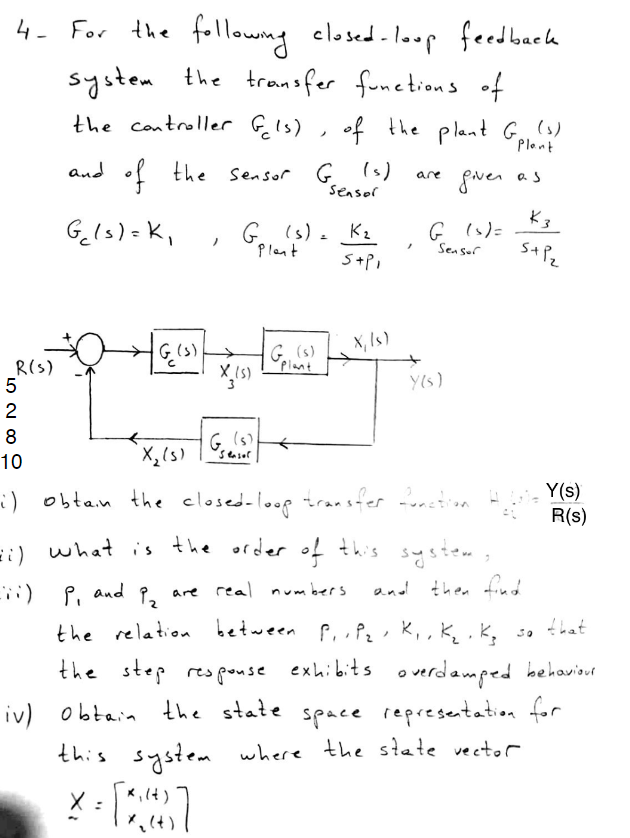 4- For the following closed-loop feedback
system the transfer functions of
the controller Gc(s), of the plant Gplant(s)
and of the sensor Gsensor(s) are given as
Gc(s) = K1 , Gplant(s) = K2/(s+p1) , Gsensor(s) = K3/(s+p2)
+ Gc(s) Gplant(s) X1(s)
R(s) - X3(s) Y(s)
5
2
8 Gsensor(s)
10 X2(s)
i) obtain the closed-loop transfer function Hcl(s) = Y(s)/R(s)
ii) what is the order of this system,
iii) p1 and p2 are real numbers and then find
the relation between p1, p2, K1, K2, K3 so that
the step response exhibits overdamped behaviour
iv) obtain the state space representation for
this system where the state vector
X = [x1(t)
x2(t)]